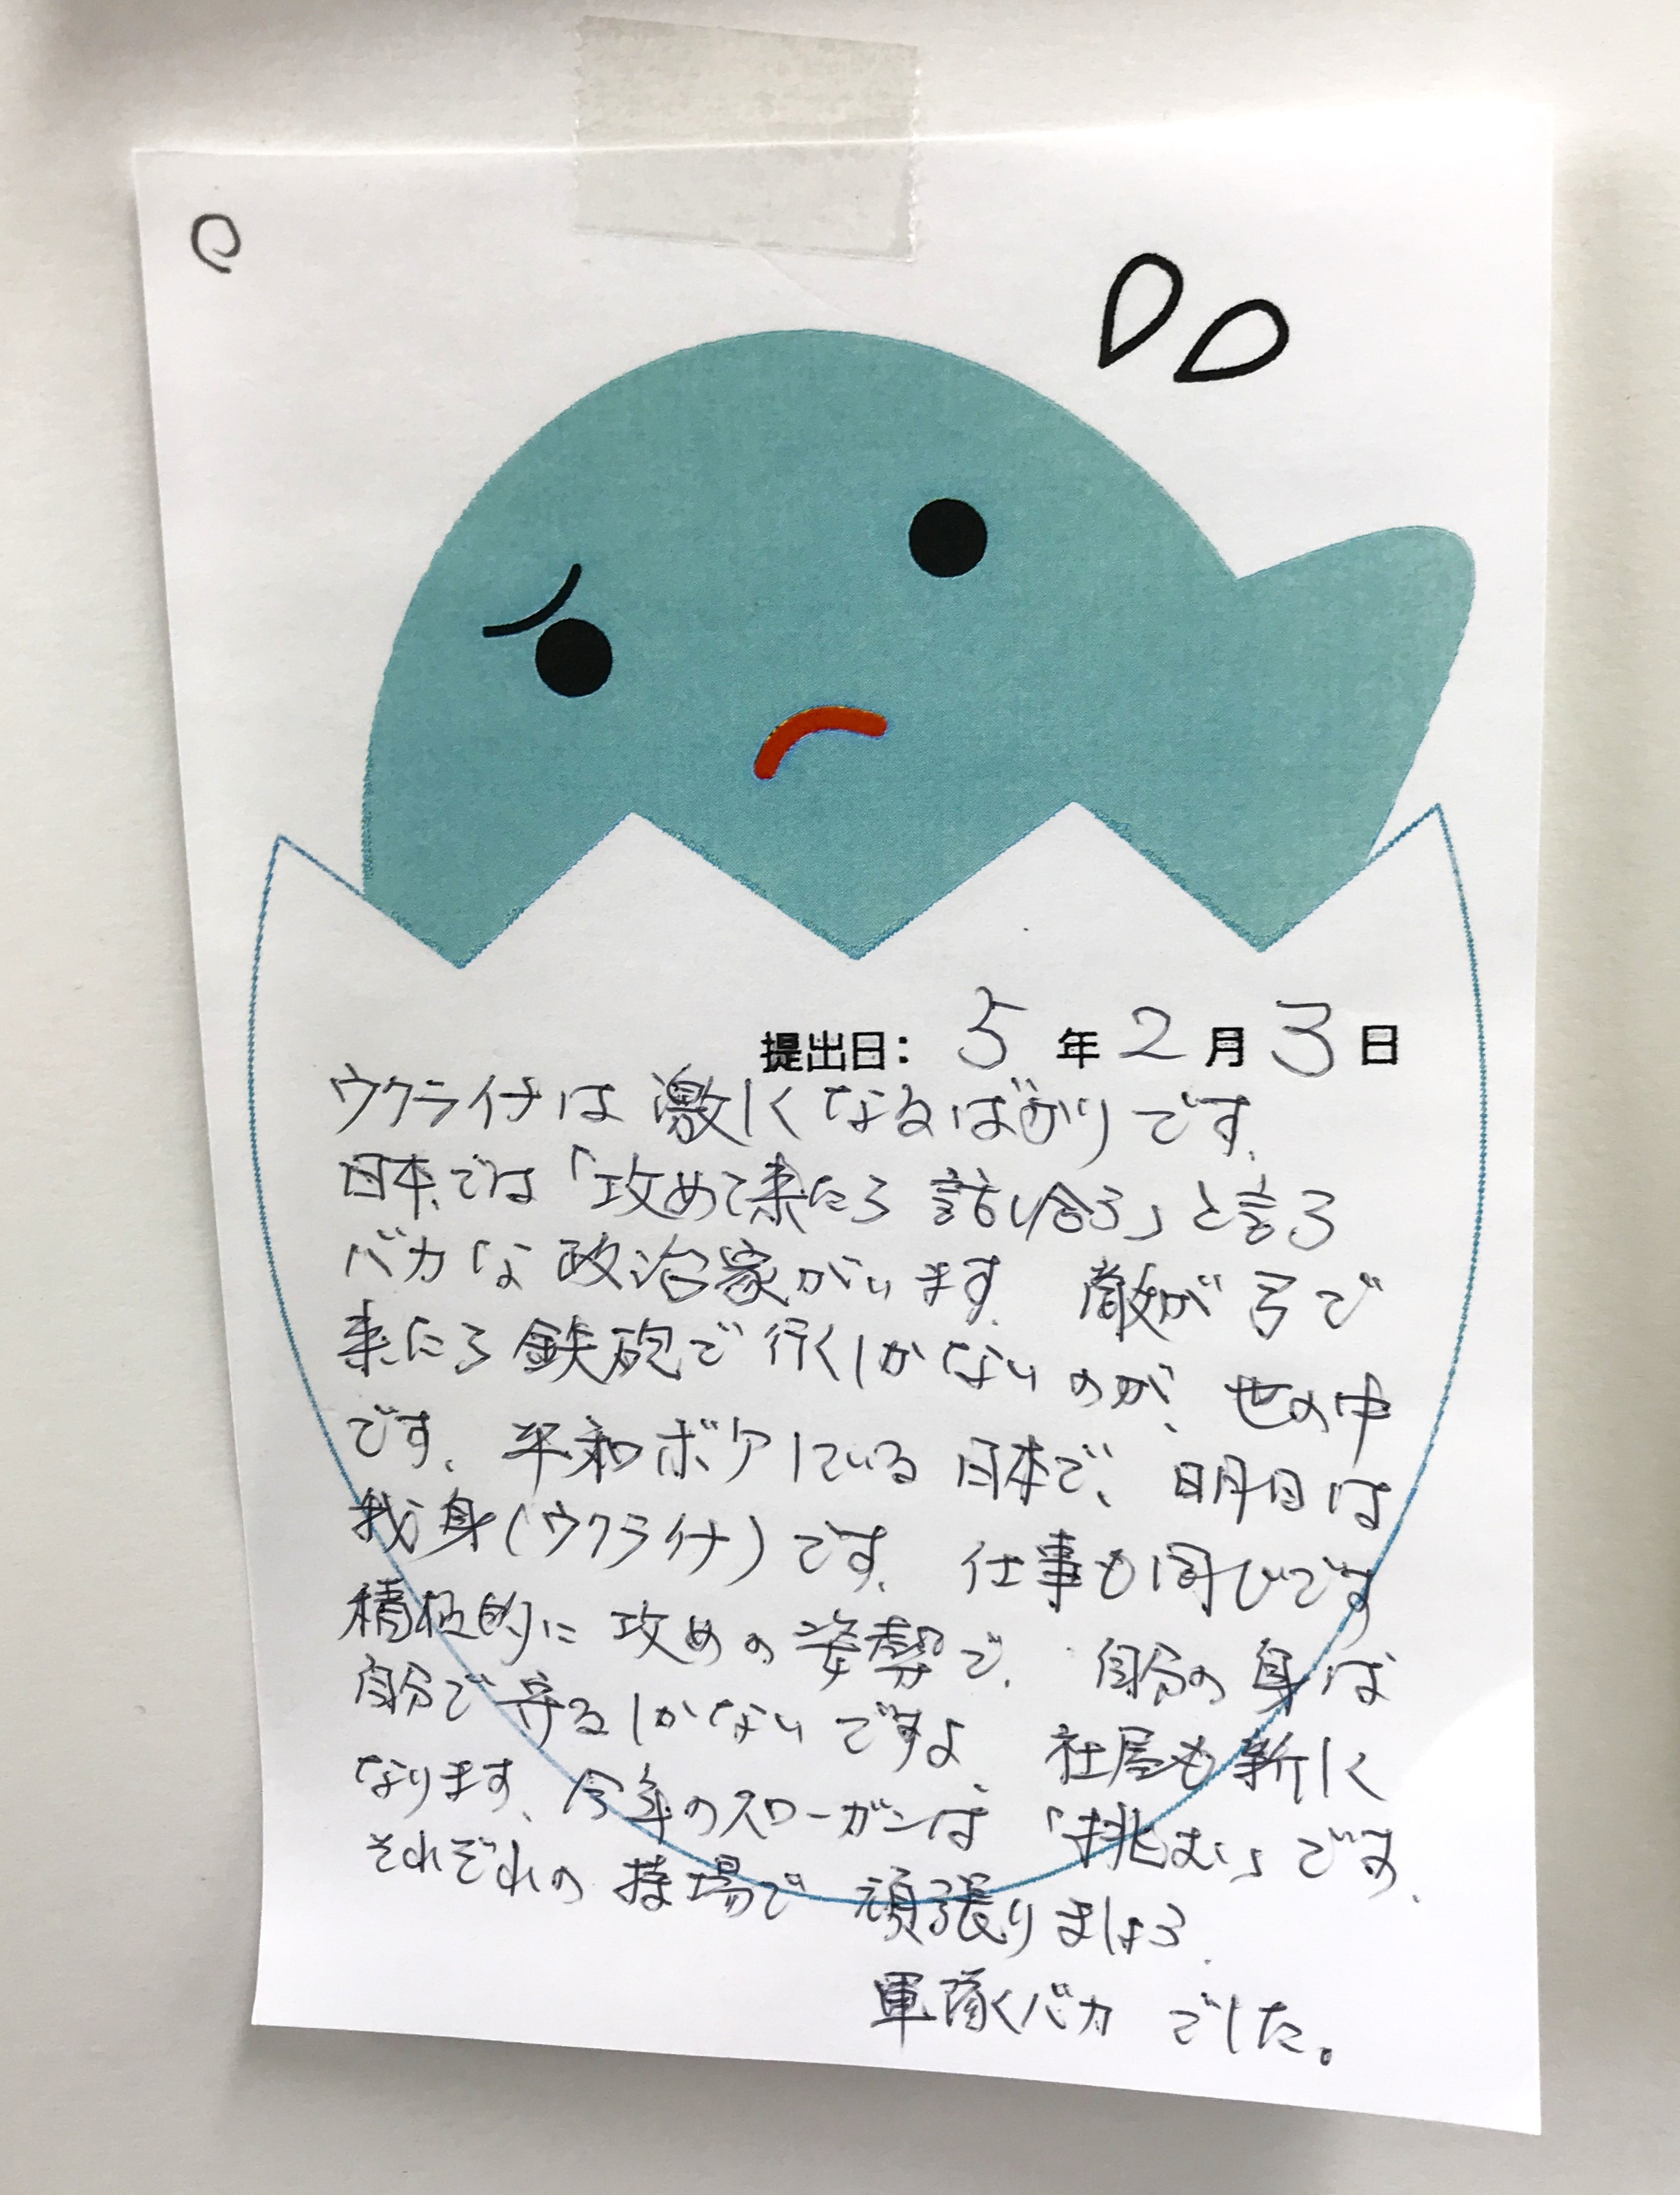 提出日: 5年2月3日
ウクライナは激しくなるばかりです、
日本では「攻めて来たら話し合う」と言う
バカな政治家がいます、敵が弓で
来たら鉄砲で行くしかないのが、世の中
です、平和ボケしている日本で、明日は
我身(ウクライナ)です、仕事も同じです
積極的に攻めの姿勢で、自分の身は
自分で守るしかないですよ、社屋も新しく
なります、今年のスローガンは「挑む」です、
それぞれの持場で頑張りましょう、
軍隊バカでした。